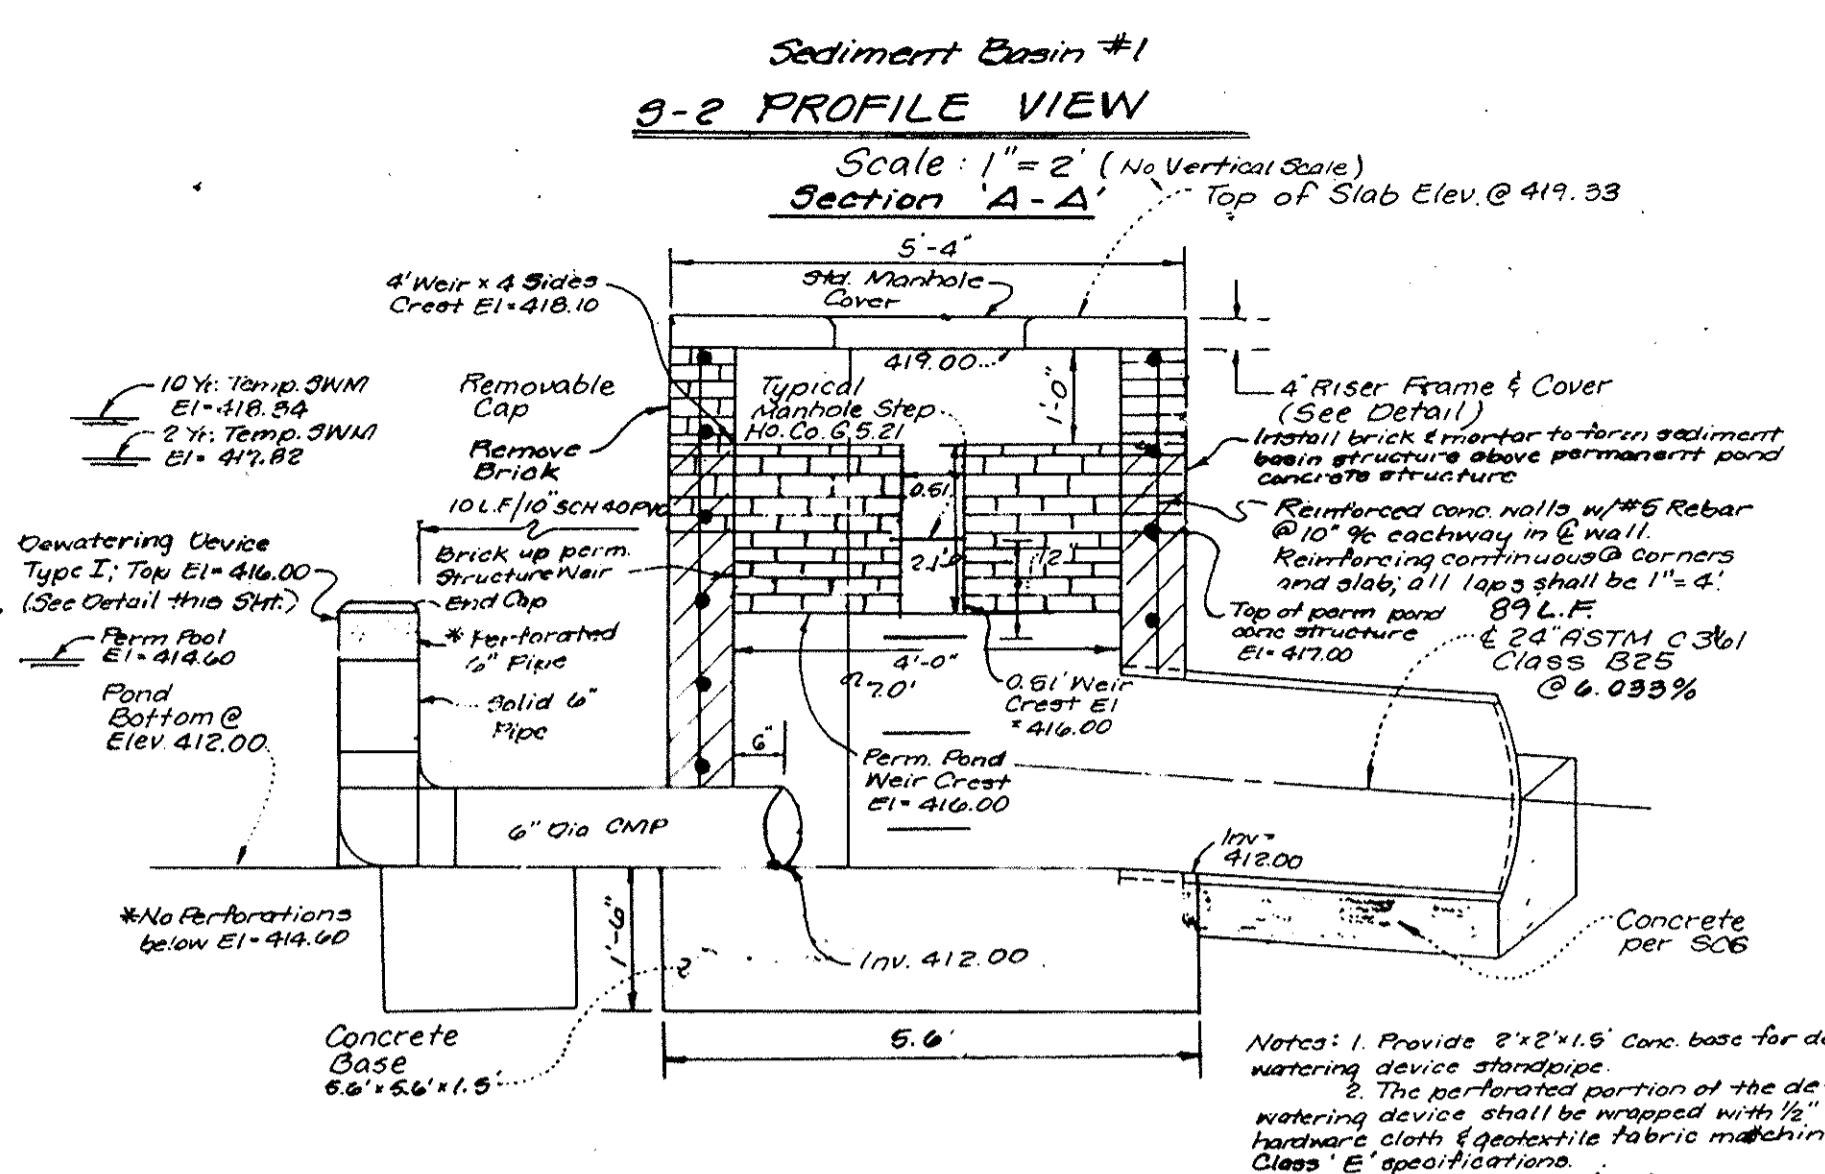 Sediment Basin #1
S-2 PROFILE VIEW
Scale: 1"= 2' (No Vertical Scale)
Section 'A-A'
Top of Slab Elev. @ 419.33
5'-4"
4' Weir x 4 Sides
Crest El=418.10
Std. Manhole
Cover
419.00
10 Yr. Temp. SWM
El=418.34
2 Yr. Temp. SWM
El= 417.82
Removable
Cap
Remove
Brick
Typical
Manhole Step
Ho. Co. G 5.21
1'-0"
4" Riser Frame & Cover
(See Detail)
Install brick & mortar to form sediment
basin structure above permanent pond
concrete structure
10 L.F./10" SCH 40 PVC
0.51
Reinforced conc. walls w/#5 Rebar
@ 10" % eachway in ℄ wall.
Reinforcing continuous @ corners
and slab; all laps shall be 1"= 4'.
Dewatering Device
Type I; Top El= 416.00
(See Detail this Sht.)
Brick up perm.
Structure Weir
2.1'
12"
End Cap
* Perforated
6" Pipe
Top of perm pond
conc structure
El= 417.00
89 L.F.
℄ 24" ASTM C 361
Class B25
@ 6.033%
Perm Pool
El= 414.60
4'-0"
7.0'
Solid 6"
Pipe
0.51' Weir
Crest El
= 416.00
Pond
Bottom @
Elev. 412.00
6"
Perm. Pond
Weir Crest
El= 416.00
6" Dia CMP
Inv=
412.00
*No Perforations
below El=414.60
1'-6"
Inv. 412.00
Concrete
per SC6
Concrete
Base
5.6' x 5.6' x 1.5'
5.6'
Notes: 1. Provide 2'x2'x1.5' Conc. base for de
watering device standpipe.
2. The perforated portion of the de-
watering device shall be wrapped with 1/2"
hardware cloth & geotextile fabric matchin
Class 'E' specifications.